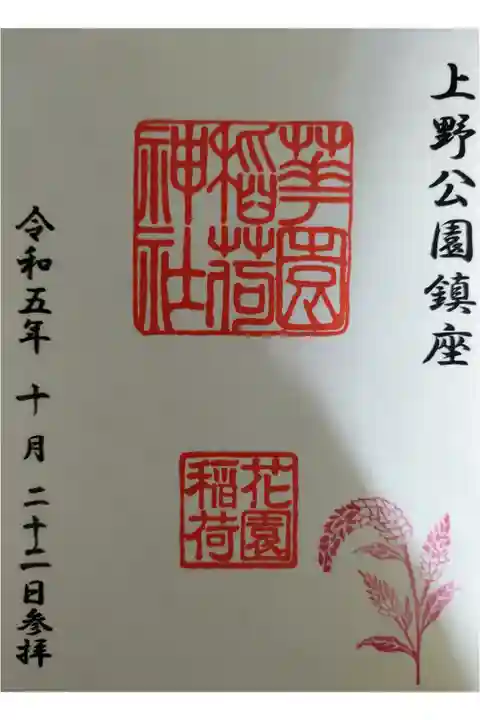 上野公園鎮座
華園
稲荷
神社
花園
稲荷
令和五年 十月 二十二日参拝